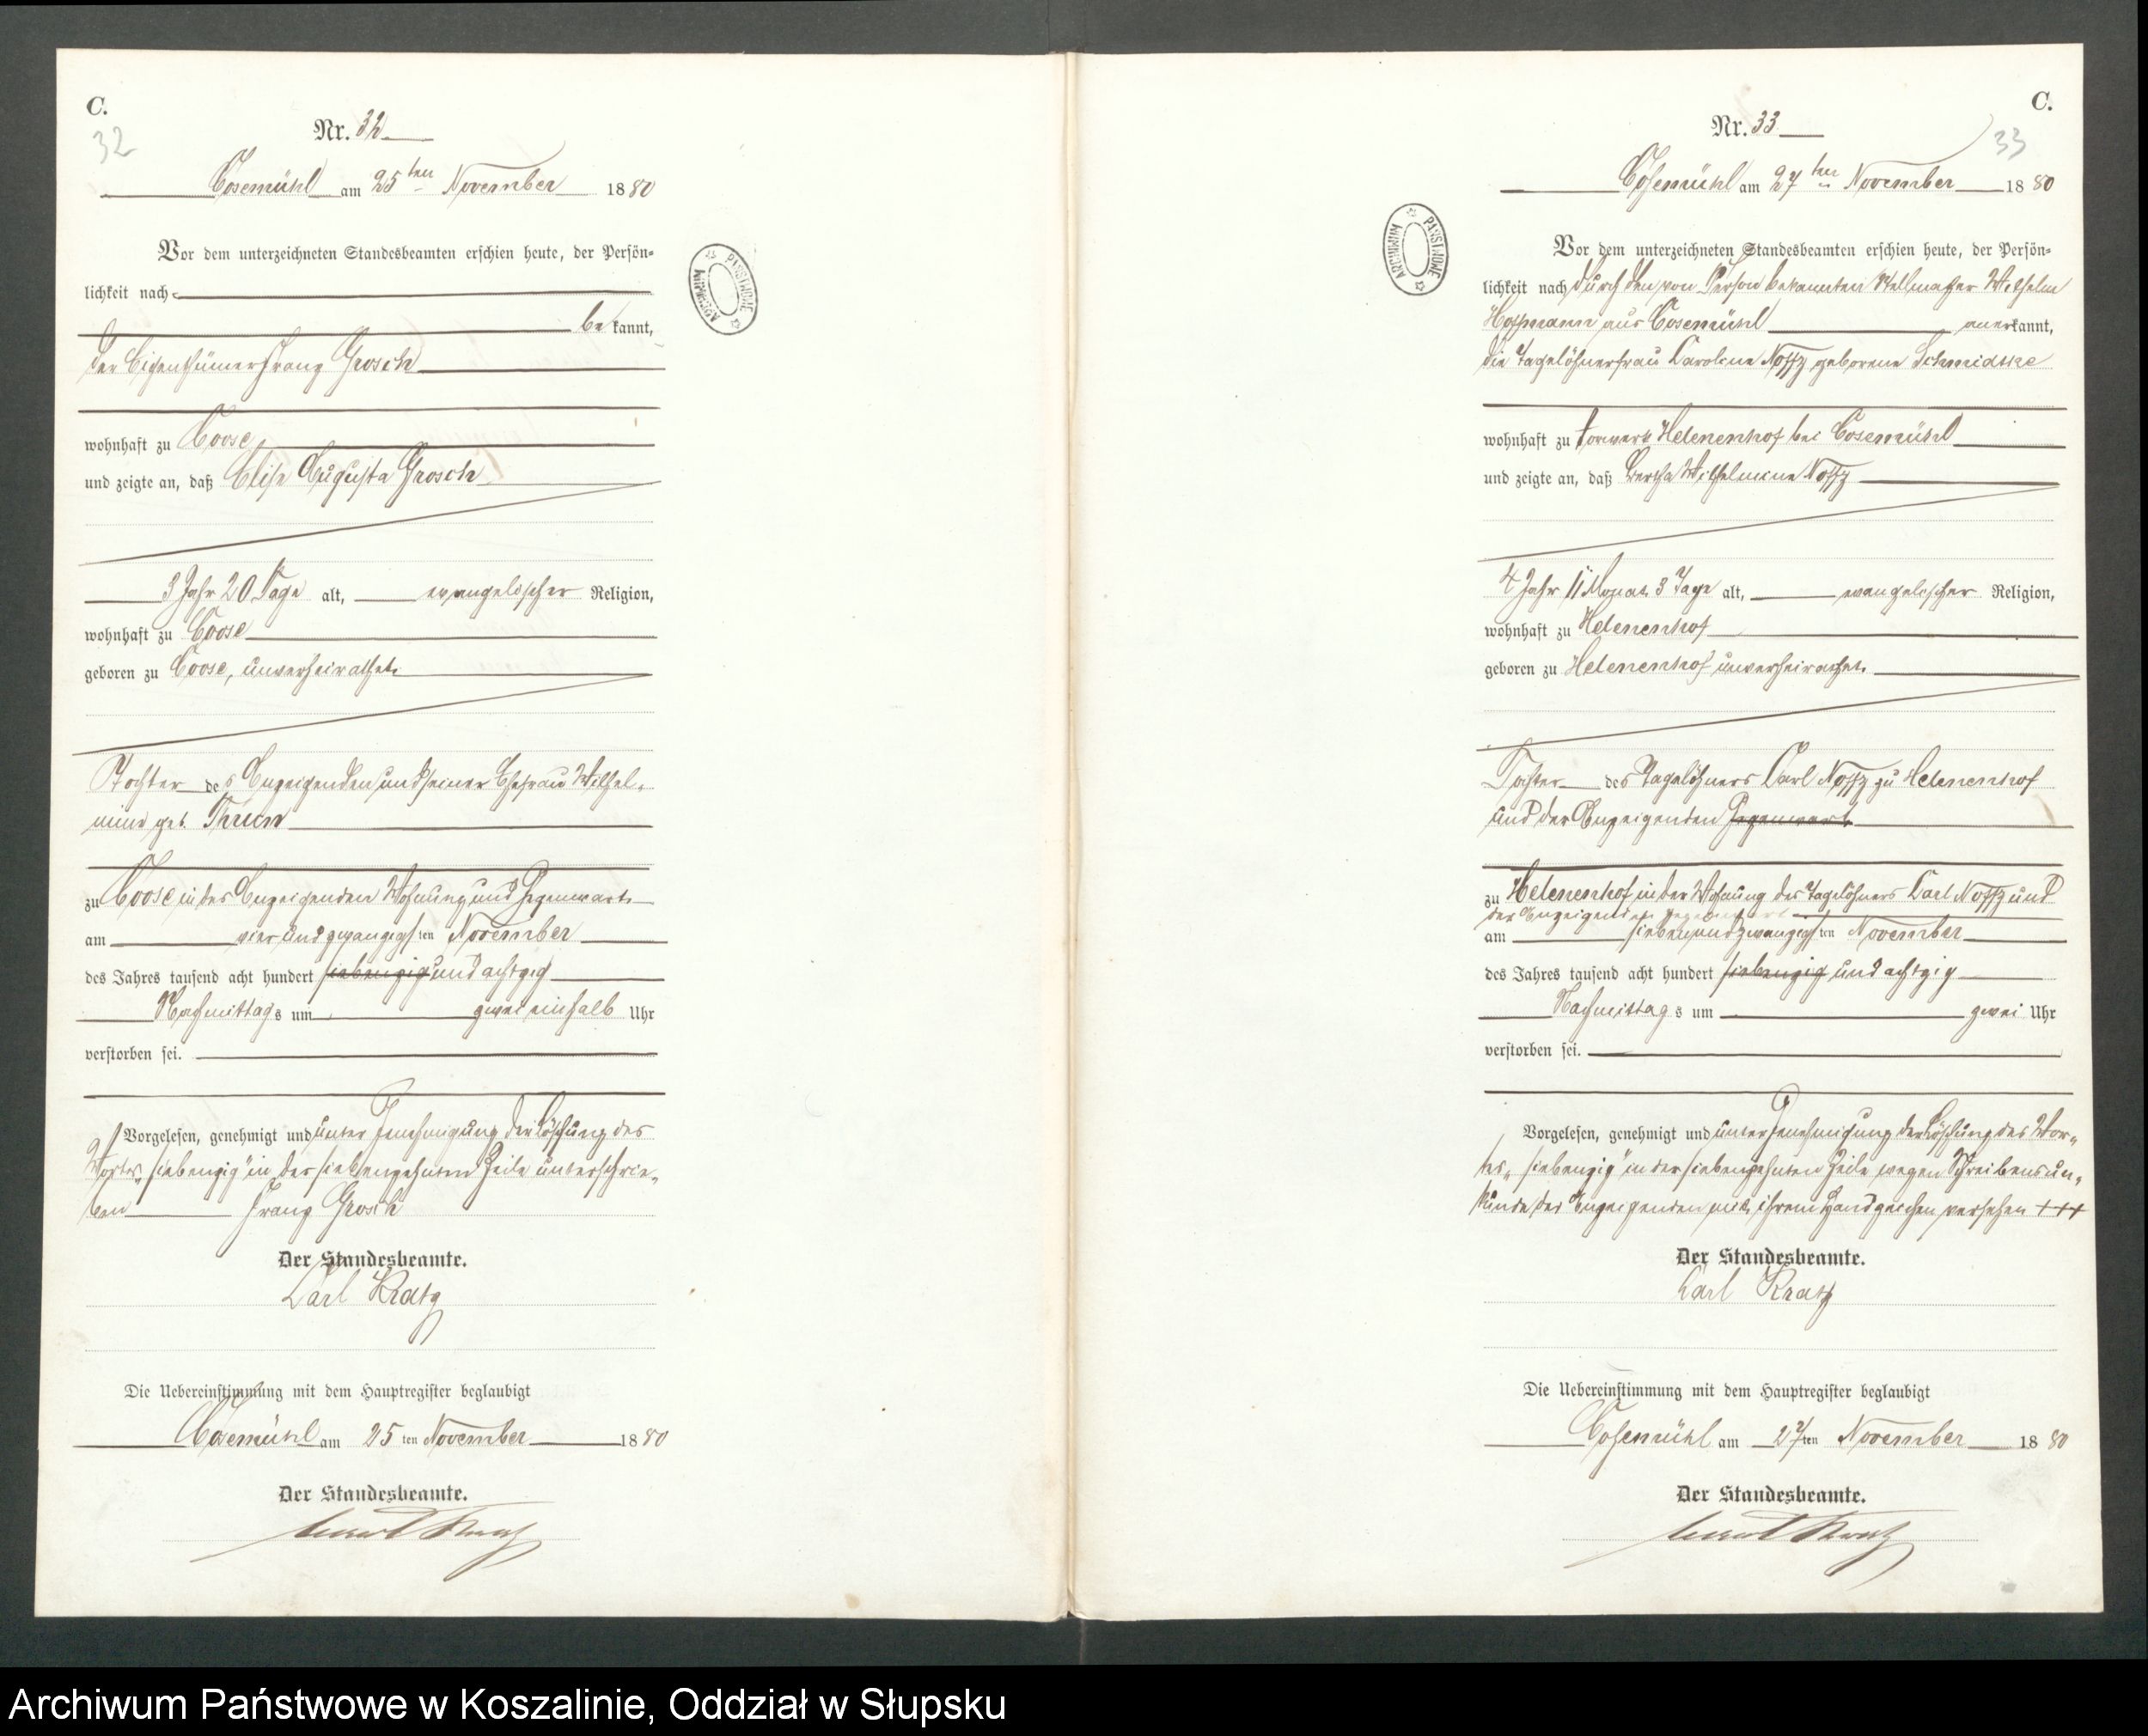 C.
32
Nr. 32
Cosemühl am 25ten November 1880
Vor dem unterzeichneten Standesbeamten erschien heute, der Persön-
lichkeit nach
be kannt,
der Eigenthümer Franz Grosch
wohnhaft zu Coose
und zeigte an, daß Elise Augusta Grosch
3 Jahr 20 Tage alt, evangelischer Religion,
wohnhaft zu Coose
geboren zu Coose, unverheirathet.
Tochter des Anzeigenden und seiner Ehefrau Wilhel-
mine geb. Thrun
zu Coose in des Anzeigenden Wohnung und Gegenwart
am vier und zwanzigsten November
des Jahres tausend acht hundert siebenzig und achtzig
Nachmittags um zwei einhalb Uhr
verstorben sei.
Vorgelesen, genehmigt und unter Genehmigung der Löschung des
Wortes „siebenzig" in der siebenzehnten Zeile unterschrie-
ben Franz Grosch
Der Standesbeamte.
Carl Kratz
Die Uebereinstimmung mit dem Hauptregister beglaubigt
Cosemühl am 25ten November 1880
Der Standesbeamte.
Kratz
ARCHIWUM PAŃSTWOWE
C.
33
Nr. 33
Cosemühl am 27ten November 1880
Vor dem unterzeichneten Standesbeamten erschien heute, der Persön-
lichkeit nach durch den von Person bekannten Stellmacher Wilhelm
Hoffmann aus Cosemühl anerkannt,
die Tagelöhnerfrau Caroline Noffz geborene Schmidtke
wohnhaft zu Vorwerk Helenenhof bei Cosemühl
und zeigte an, daß Bertha Wilhelmine Noffz
4 Jahr 11 Monat 3 Tage alt, evangelischer Religion,
wohnhaft zu Helenenhof
geboren zu Helenenhof unverheirathet.
Tochter des Tagelöhners Carl Noffz zu Helenenhof
und der Anzeigenden Gegenwart
zu Helenenhof in der Wohnung des Tagelöhners Carl Noffz und
der Anzeigenden Gegenwart
am siebenundzwanzigsten November
des Jahres tausend acht hundert siebenzig und achtzig
Nachmittags um zwei Uhr
verstorben sei.
Vorgelesen, genehmigt und unter Genehmigung der Löschung des Wor-
tes „siebenzig" in der siebenzehnten Zeile wegen Schreibensun-
kunde der Anzeigenden mit ihrem Handzeichen versehen +++
Der Standesbeamte.
Carl Kratz
Die Uebereinstimmung mit dem Hauptregister beglaubigt
Cosemühl am 27ten November 1880
Der Standesbeamte.
Kratz
ARCHIWUM PAŃSTWOWE
Archiwum Państwowe w Koszalinie, Oddział w Słupsku